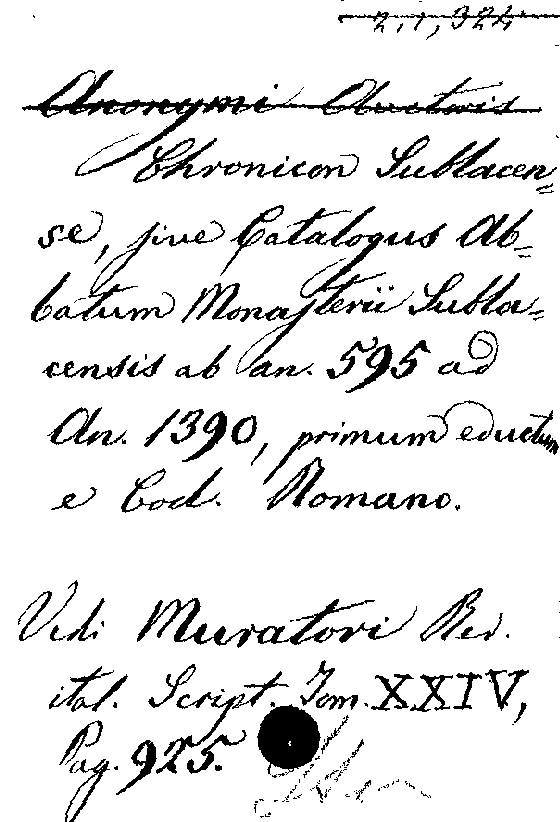 2,1,324
Anonymi Auctoris
Chronicon Sublacen=
se, sive Catalogus Ab=
batum Monasterii Subla=
censis ab an. 595 ad
An. 1390, primum eductum
e Cod. Romano.
Vedi Muratori Rer.
ital. Script. Tom. XXIV,
Pag. 925.